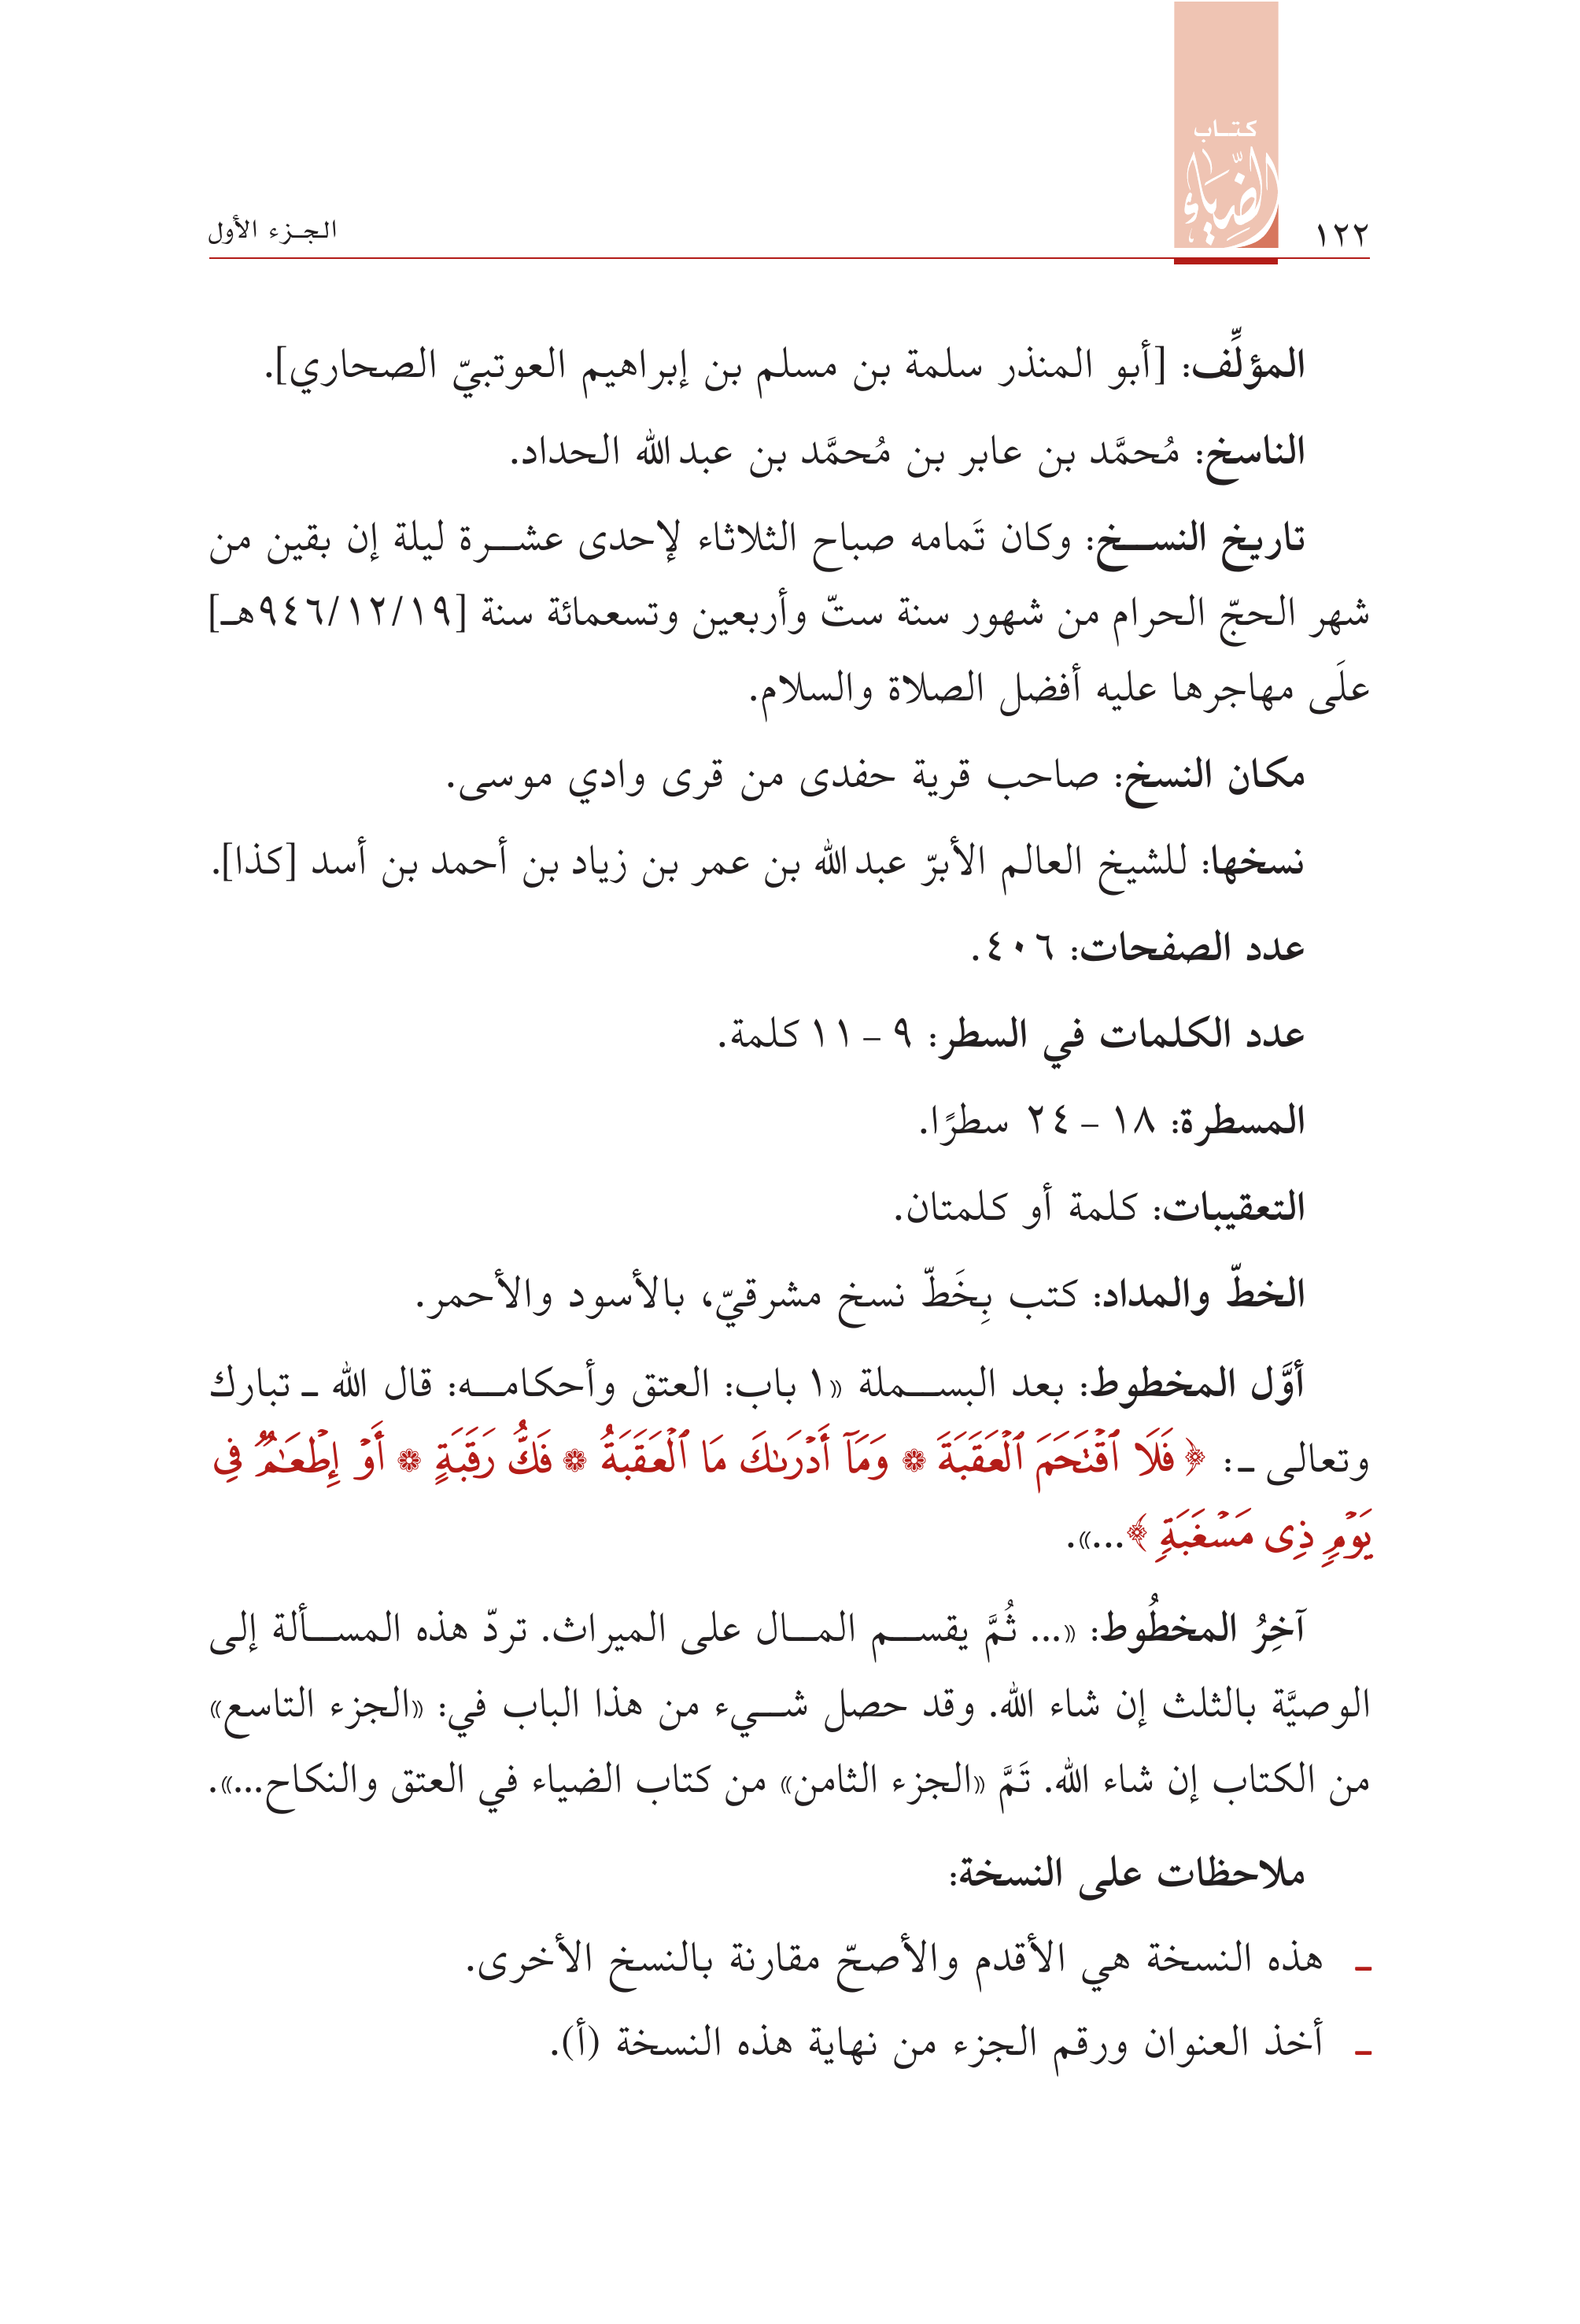 ١٢٢
كتاب
الضِّيَاء
الجزء الأول
المؤلِّف: [أبو المنذر سلمة بن مسلم بن إبراهيم العوتبيّ الصحاري].
الناسخ: مُحمَّد بن عابر بن مُحمَّد بن عبد الله الحداد.
تاريخ النسخ: وكان تَمامه صباح الثلاثاء لإحدى عشرة ليلة إن بقين من
شهر الحجّ الحرام من شهور سنة ستّ وأربعين وتسعمائة سنة [٩٤٦/١٢/١٩هـ]
علَى مهاجرها عليه أفضل الصلاة والسلام.
مكان النسخ: صاحب قرية حفدى من قرى وادي موسى.
نسخها: للشيخ العالم الأبرّ عبد الله بن عمر بن زياد بن أحمد بن أسد [كذا].
عدد الصفحات: ٤٠٦.
عدد الكلمات في السطر: ٩ - ١١ كلمة.
المسطرة: ١٨ - ٢٤ سطرًا.
التعقيبات: كلمة أو كلمتان.
الخطّ والمداد: كتب بِخَطّ نسخ مشرقيّ، بالأسود والأحمر.
أوَّل المخطوط: بعد البسملة «١ باب: العتق وأحكامه: قال الله ـ تبارك
وتعالى ـ: ﴿ فَلَا ٱقۡتَحَمَ ٱلۡعَقَبَةَ ۞ وَمَآ أَدۡرَىٰكَ مَا ٱلۡعَقَبَةُ ۞ فَكُّ رَقَبَةٍ ۞ أَوۡ إِطۡعَٰمٞ فِي
يَوۡمٖ ذِي مَسۡغَبَةٖ ﴾...».
آخِرُ المخطُوط: «... ثُمَّ يقسم المال على الميراث. تردّ هذه المسألة إلى
الوصيَّة بالثلث إن شاء الله. وقد حصل شيء من هذا الباب في: «الجزء التاسع»
من الكتاب إن شاء الله. تَمَّ «الجزء الثامن» من كتاب الضياء في العتق والنكاح...».
ملاحظات على النسخة:
ـ هذه النسخة هي الأقدم والأصحّ مقارنة بالنسخ الأخرى.
ـ أخذ العنوان ورقم الجزء من نهاية هذه النسخة (أ).